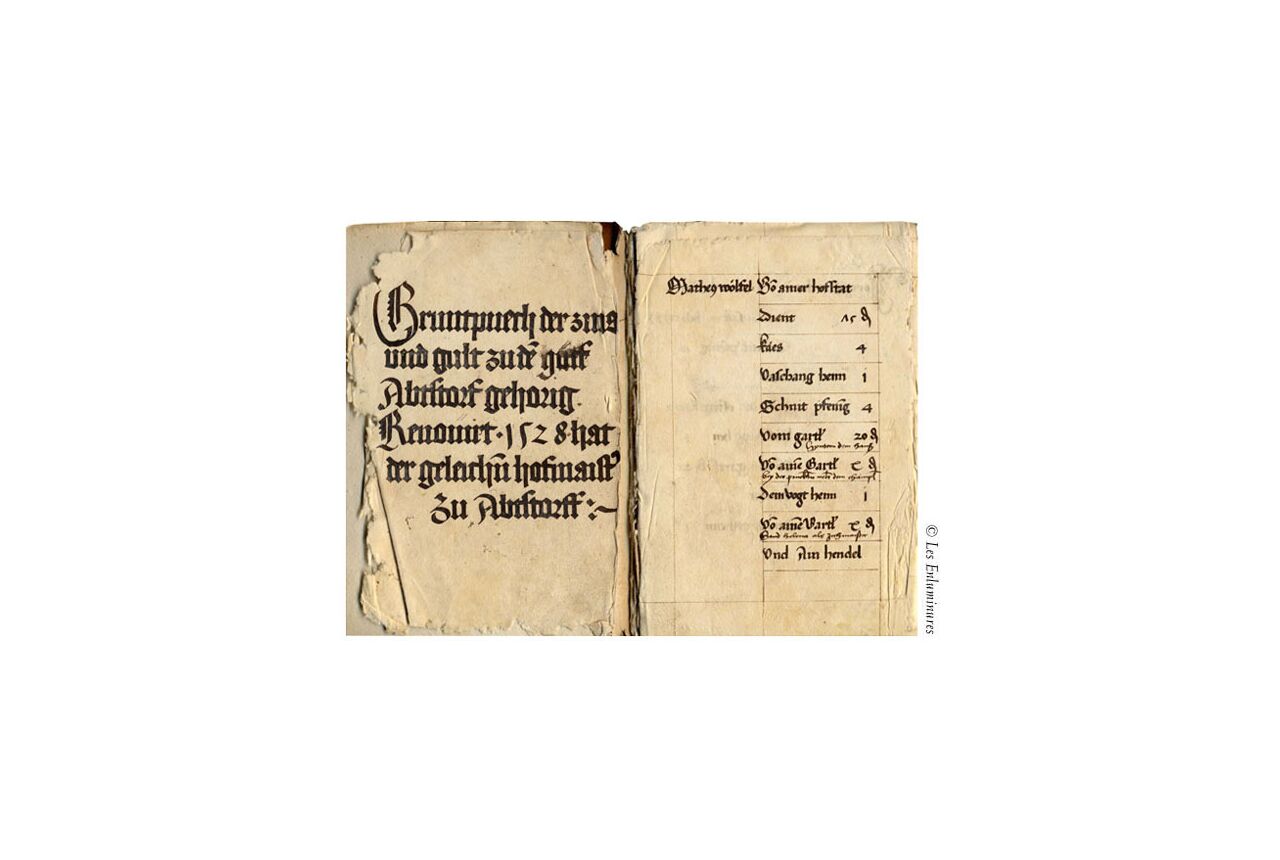 Gruntpuech der zins
und gult zu dē gutt
Abtstorf gehorig.
Renouirt · 1528 · hat
der geleichñ hofmaist'
Zu Abtstorff :~
Mathes wölfel Vō ainer hofstat
Dient 15 ₰
kaes 4
Vaschang henn 1
Schnit pfenig 4
Vom gartl 20 ₰
hyntten dem haus
Vō ainē Gartl ₰
Dem vogt henn 1
Vō ainē Gartl ₰
Und Ain hendel
© Les Enluminures